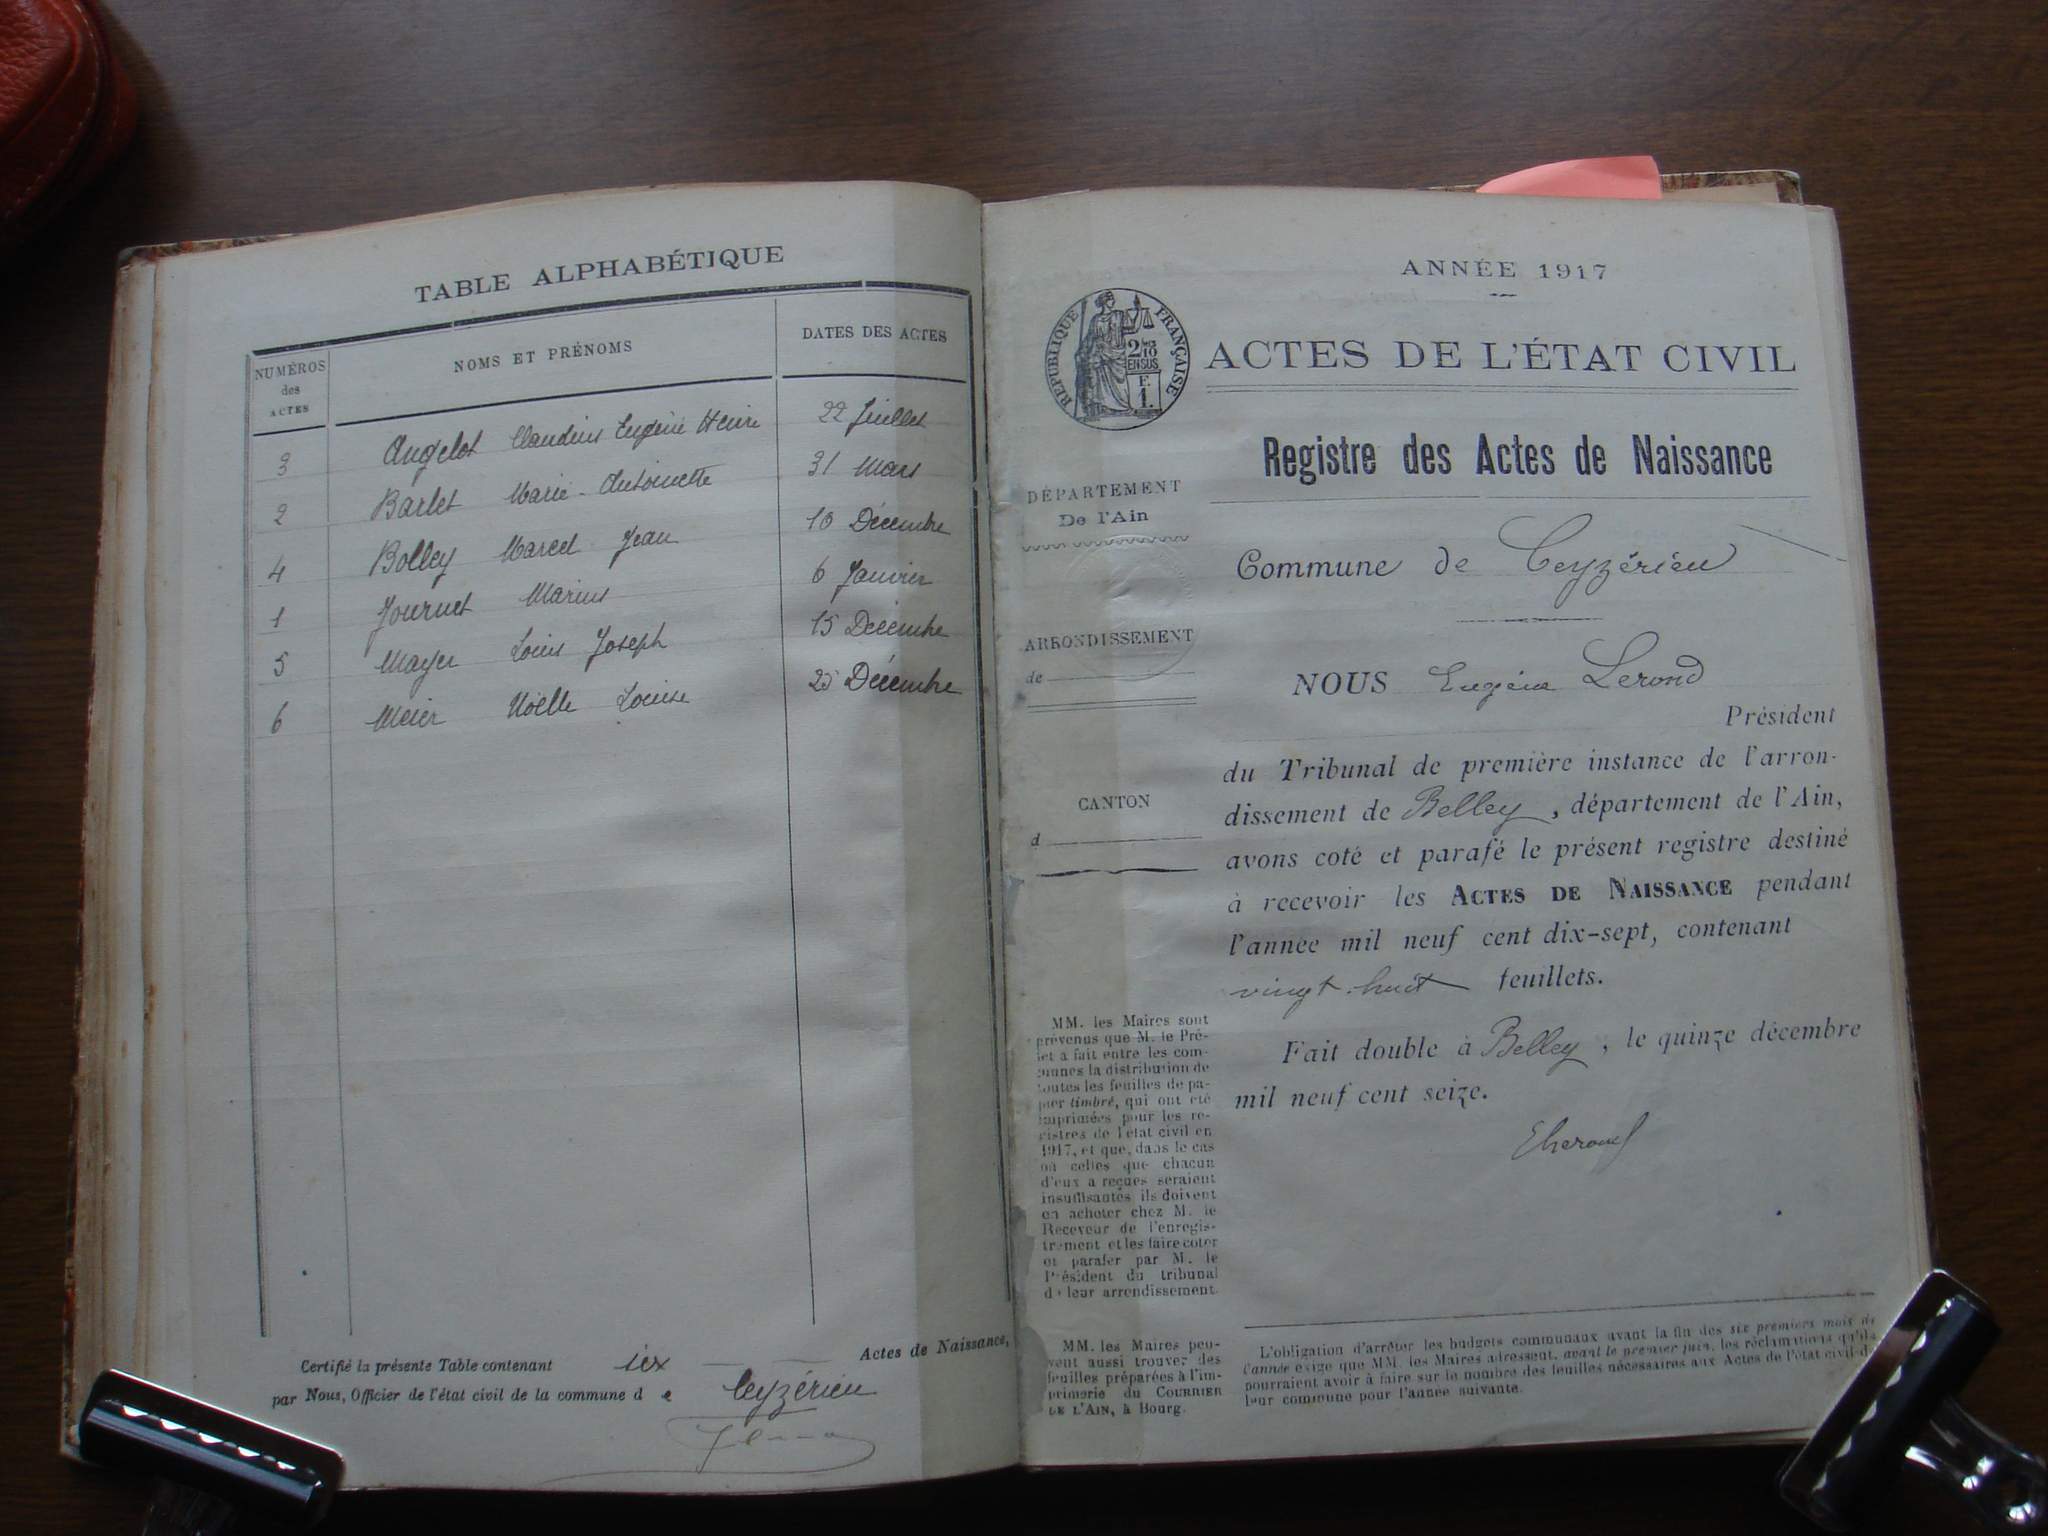 TABLE ALPHABÉTIQUE
NUMÉROS des ACTES
NOMS ET PRÉNOMS
DATES DES ACTES
3 Angelot Claudius Eugène Henri 22 Juillet
2 Barlet Marie-Antoinette 31 Mars
4 Bolley Marcel Jean 10 Décembre
1 Journet Marius 6 Janvier
5 Mayer Louis Joseph 15 Décembre
6 Meier Noëlle Louise 25 Décembre
Certifié la présente Table contenant Actes de Naissance,
par Nous, Officier de l'état civil de la commune d e Ceyzérieu
ANNÉE 1917
RÉPUBLIQUE FRANÇAISE
2/10 EN SUS
F. 1.
ACTES DE L'ÉTAT CIVIL
Registre des Actes de Naissance
DÉPARTEMENT
De l'Ain
Commune de Ceyzérieu
ARRONDISSEMENT
de
NOUS Eugène Lerond
Président
du Tribunal de première instance de l'arron-
dissement de Belley, département de l'Ain,
avons coté et parafé le présent registre destiné
à recevoir les ACTES DE NAISSANCE pendant
l'année mil neuf cent dix-sept, contenant
vingt-huit feuillets.
Fait double à Belley, le quinze décembre
mil neuf cent seize.
CANTON
d
MM. les Maires sont
prévenus que M. le Pré-
fet a fait entre les com-
munes la distribution de
toutes les feuilles de pa-
pier timbré, qui ont été
imprimées pour les re-
gistres de l'état civil en
1917, et que, dans le cas
où celles que chacun
d'eux a reçues seraient
insuffisantes ils doivent
en acheter chez M. le
Receveur de l'enregis-
trement et les faire coter
et parafer par M. le
Président du tribunal
de leur arrondissement.
MM. les Maires peu-
vent aussi trouver des
feuilles préparées à l'im-
primerie du COURRIER
DE L'AIN, à Bourg.
L'obligation d'arrêter les budgets communaux avant la fin des six premiers mois de
l'année exige que MM. les Maires adressent, avant le premier juin, les réclamations qu'ils
pourraient avoir à faire sur le nombre des feuilles nécessaires aux Actes de l'état civil de
leur commune pour l'année suivante.